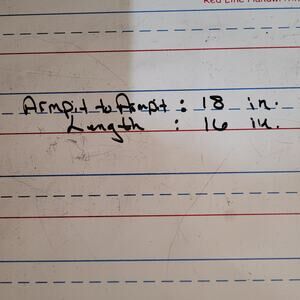 Red Line Handwriti
Armpit to Armpit : 18 in.
Length : 16 in.